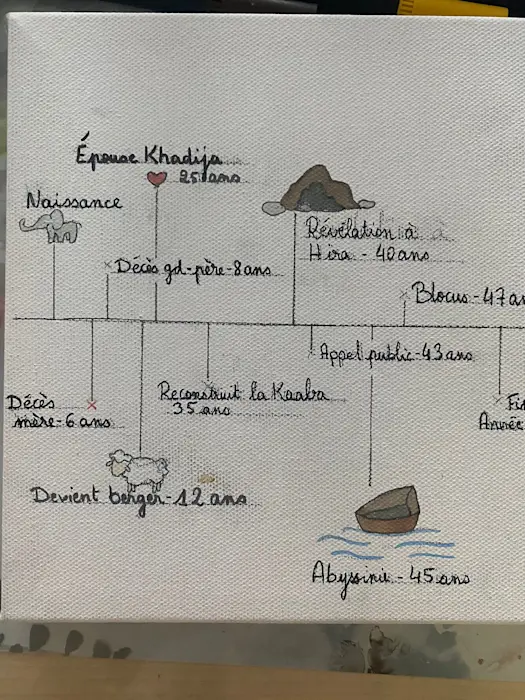 Épouse Khadija
25 ans
Naissance
Révélation à
Hira - 40 ans
Décès gd-père - 8 ans
Blocus - 47 an
Appel public - 43 ans
Reconstruit la Kaaba
35 ans
Décès
mère - 6 ans
Année
Devient berger - 12 ans
Abyssinie - 45 ans